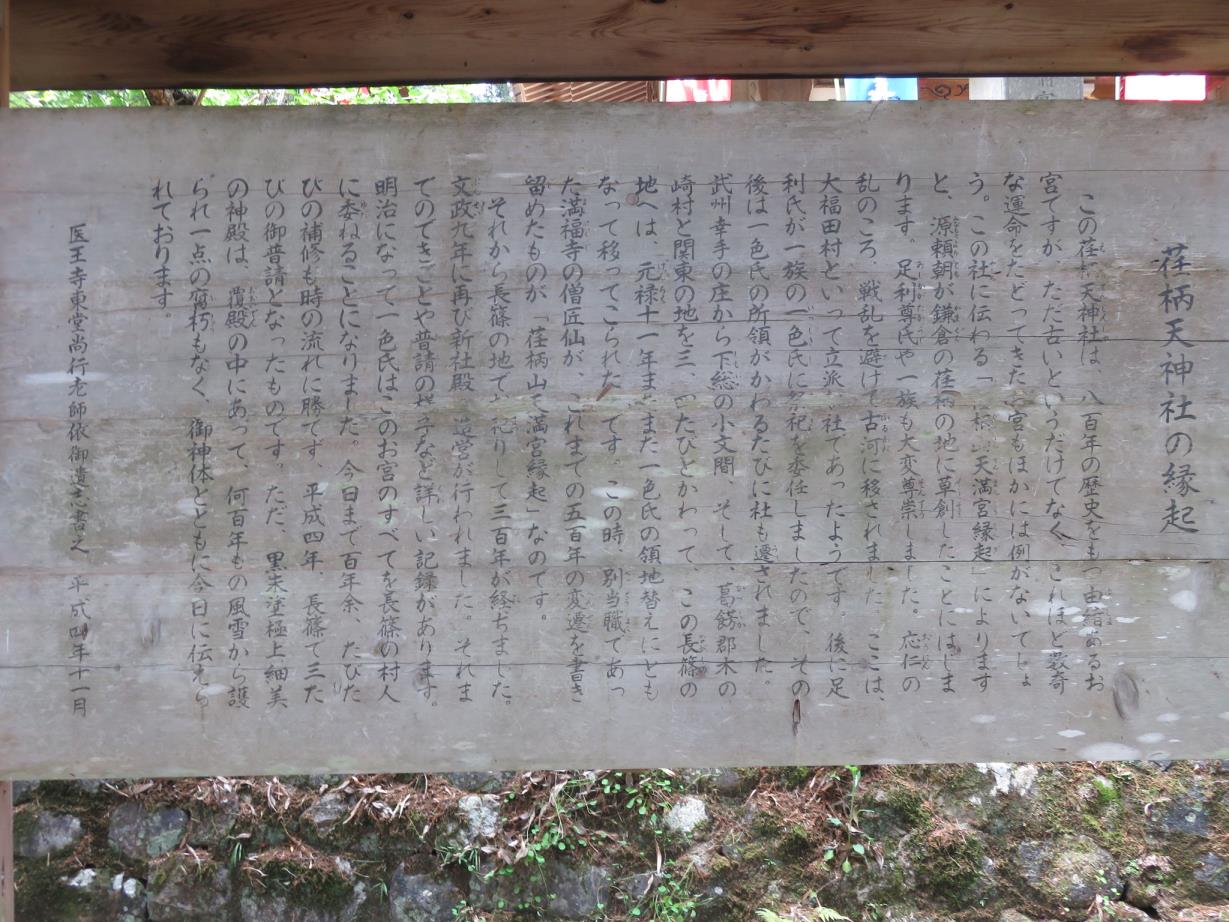 荏柄天神社の縁起
この荏柄天神社は、八百年の歴史をもつ由緒あるお
宮ですが、ただ古いというだけでなく、これほど数奇
な運命をたどってきたお宮もほかには例がないでしょ
う。この社に伝わる「荏柄山天満宮縁起」によります
と、源頼朝が鎌倉の荏柄の地に草創したことにはじま
ります。足利尊氏や一族も大変尊崇しました。応仁の
乱のころ、戦乱を避けて古河に移されました。ここは、
大福田村といって立派な社であったようです。後に足
利氏が一族の一色氏に祭祀を委任しましたので、その
後は一色氏の所領がかわるたびに社も遷されました。
武州幸手の庄から下総の小文間、そして、葛飾郡木の
崎村と関東の地を三、四たびとかわって、この長篠の
地へは、元禄十一年、また一色氏の領地替えにとも
なって移ってこられたのです。この時、別当職であっ
た満福寺の僧匠仙が、これまでの五百年の変遷を書き
留めたものが「荏柄山天満宮縁起」なのです。
それから長篠の地でお祀りして三百年が経ちました。
文政九年に再び新社殿の造営が行われました。それま
でのできごとや普請の様子など詳しい記録があります。
明治になって一色氏はこのお宮のすべてを長篠の村人
に委ねることになりました。今日まで百年余、たびた
びの補修も時の流れに勝てず、平成四年、長篠で三た
びの御普請となったものです。ただ、黒末塗極上細美
の神殿は、覆殿の中にあって、何百年もの風雪から護
られ一点の腐朽もなく、御神体とともに今日に伝えら
れております。
医王寺東堂尚行老師依御遺志書之 平成四年十一月